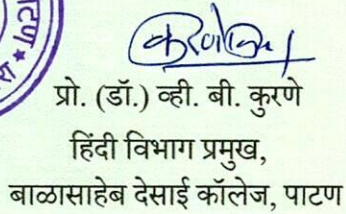 पाटण *
कुरणे
प्रो. (डॉ.) व्ही. बी. कुरणे
हिंदी विभाग प्रमुख,
बाळासाहेब देसाई कॉलेज, पाटण